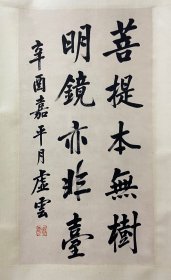 菩提本無樹
明鏡亦非臺
辛酉嘉平月虛雲